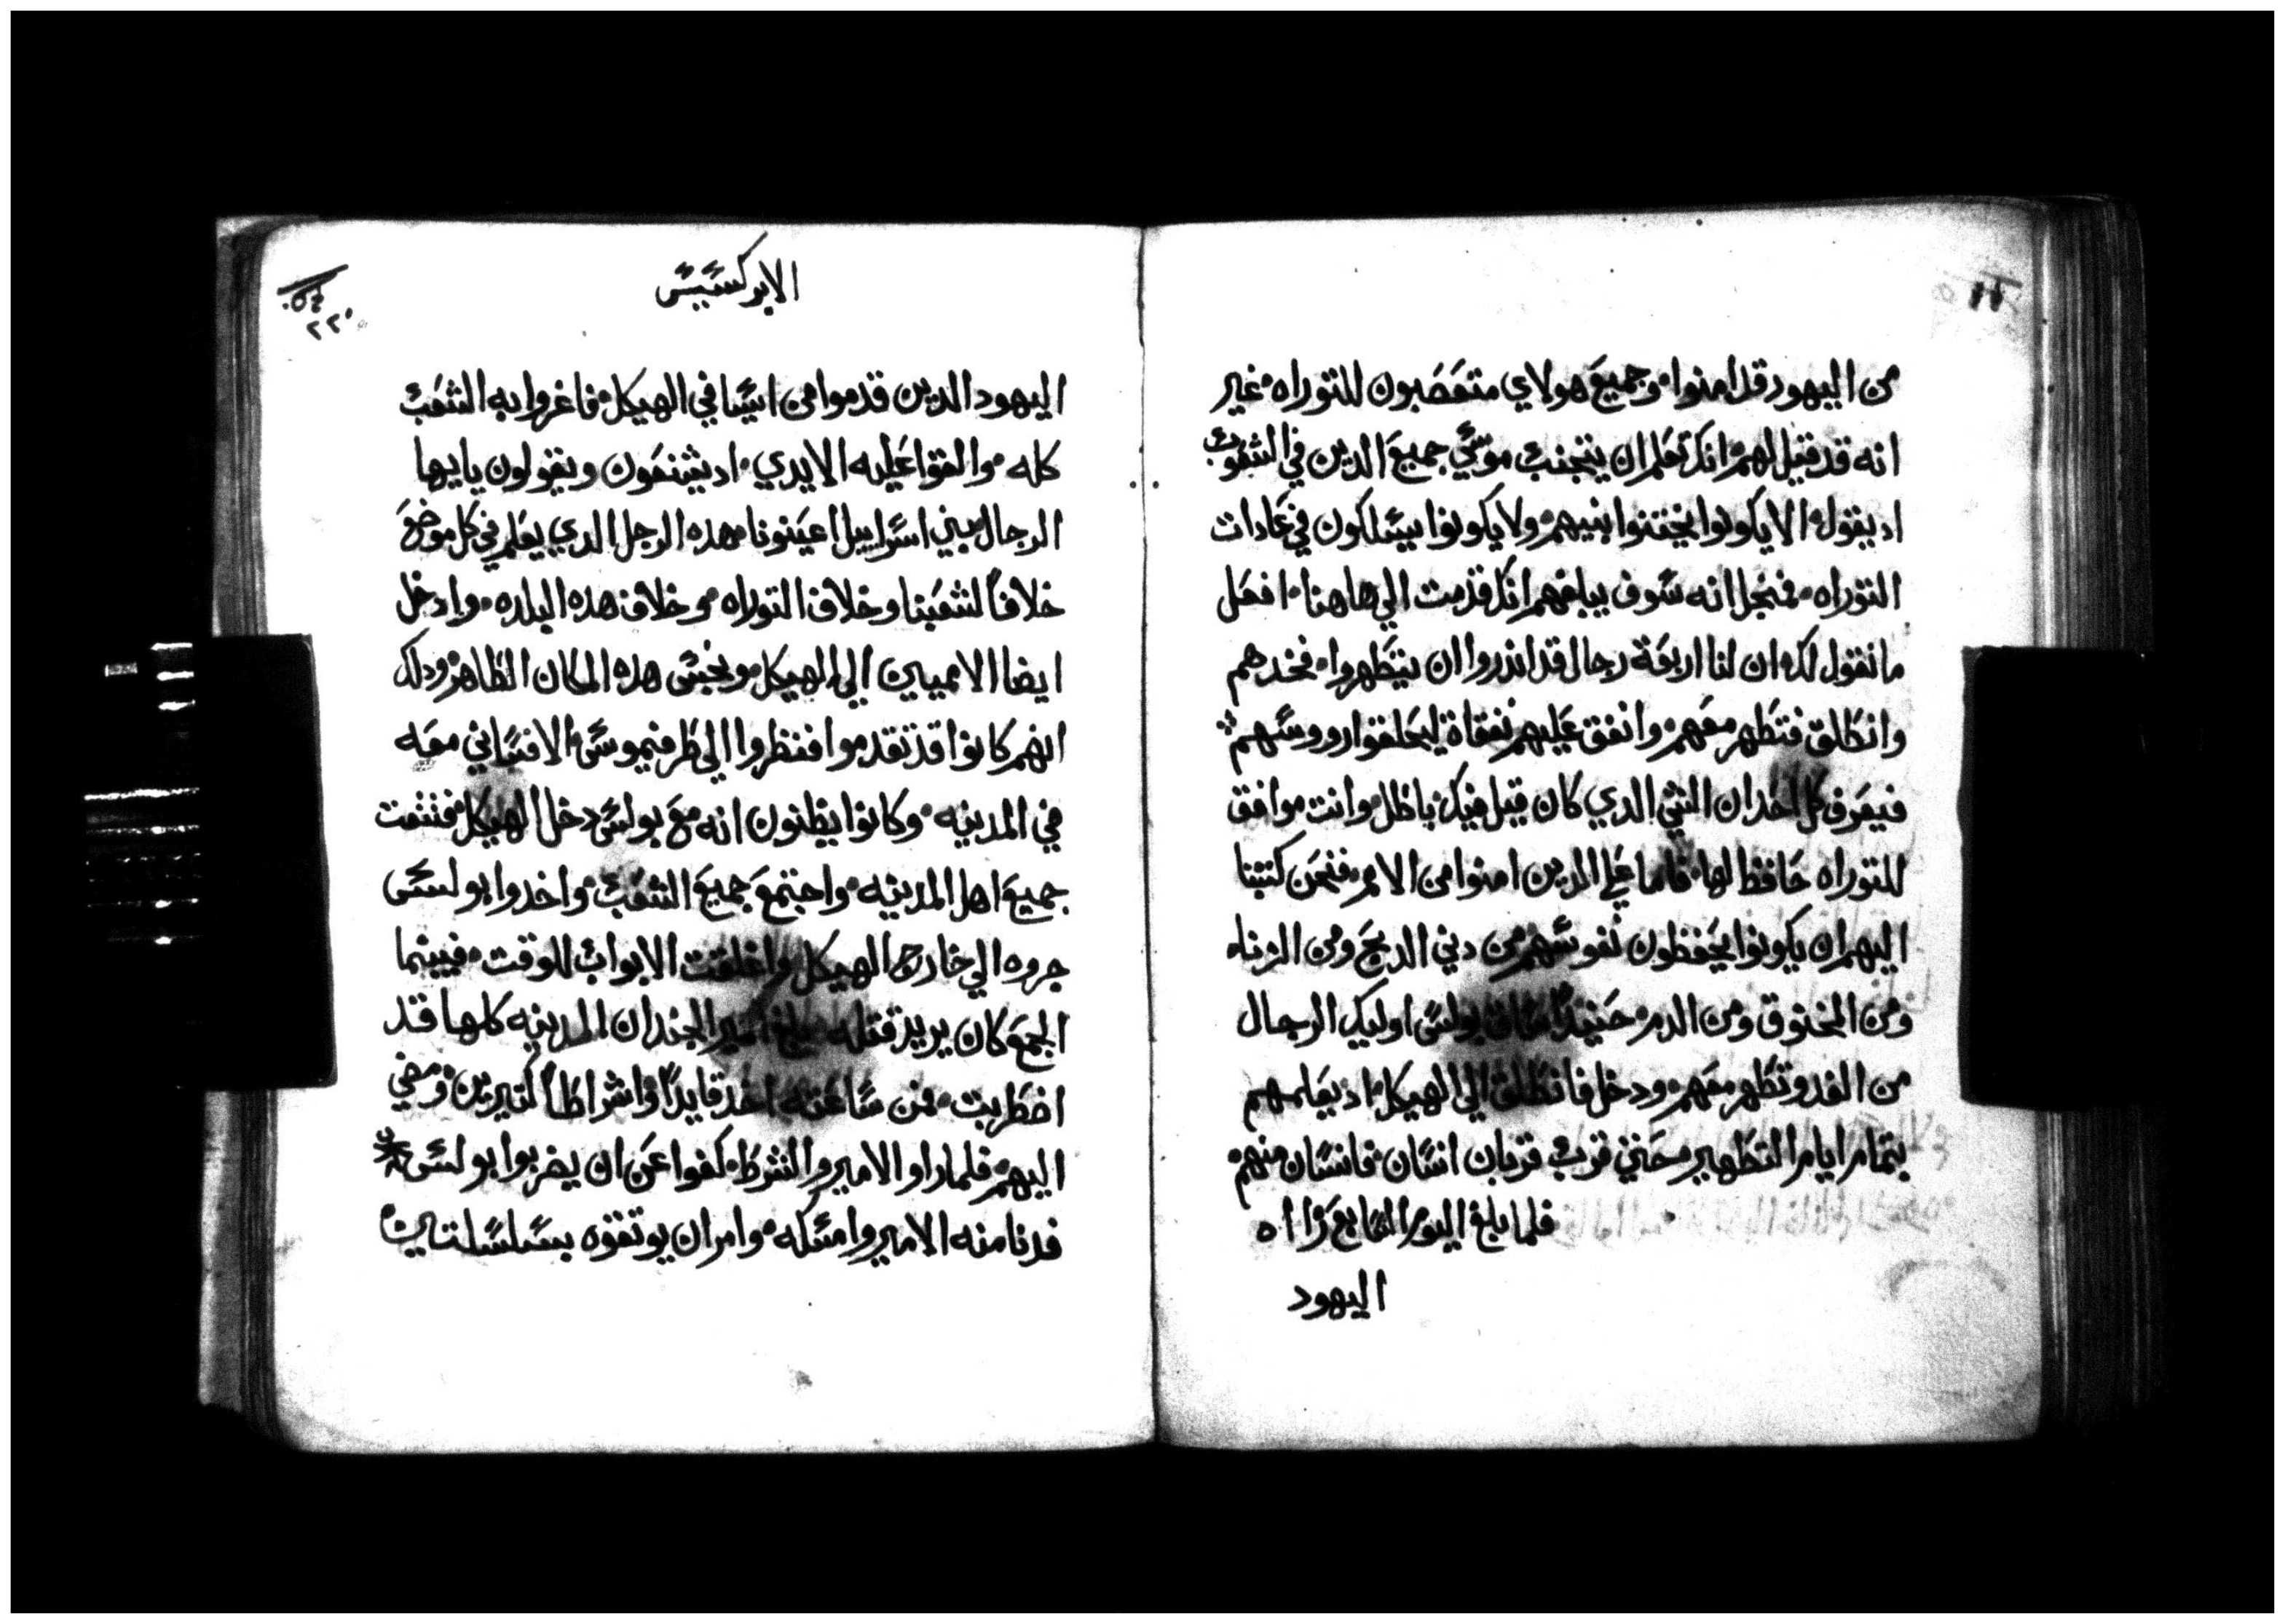 من اليهود قد امنوا، وجميع هولاي متعصبون للتوراه، غير
انه قد قيل لهم انك تعلم ان يتجنب موسي جميع الدين في الشعوب
اد يقول الا يكونوا يختنوا بنيهم، ولا يكونوا يسلكون في عادات
التوراه، فمنجل انه سوف يبلغهم انك قدمت الي هاهنا، افعل
ما نقول لك، ان لنا اربعة رجال قد اندروا ان يتطهروا، فخدهم
وانطلق فتطهر معهم، وانفق عليهم نفقاة ليحلقوا رووسهم
فيعرف كل احد ان الشي الدي كان قيل فيك باطل، وانت موافق
للتوراه حافظ لها، فاما علي الدين امنوا من الامم، فنحن كتبنا
اليهم ان يكونوا يحفظون نفوسهم من ديني الدبح ومن الزناه
ومن المخنوق ومن الدم، حينيد ساق بولس اوليك الرجال
من الغد وتطهر معهم، ودخل فانطلق الي الهيكل، اد يعلمهم
بتمام ايام التطهير، حتي قرب قربان انسان، فانسان منهم،
فلما بلغ اليوم السابع راا ه
اليهود
٥٤
٢٢٠
الابركسيس
اليهود الدين قدموا من اسيا في الهيكل، فاغروا به الشعب
كله، والقوا عليه الايدي، اد يشنعون ويقولون يا ايها
الرجال بني اسراييل اعينونا، هده الرجل الدي يعلم في كل موضع
خلافاً لشعبنا وخلاف التوراه، وخلاف هده البلده، وادخل
ايضا الامميين الي الهيكل، ونجس هده المكان الطاهر، ودلك
انهم كانوا قد تقدموا فنظروا الي طرفيموس الافساني معه
في المدينه، وكانوا يظنون انه مع بولس دخل الهيكل، فتشعت
جميع اهل المدينه، واجتمع جميع الشعب، واخدوا بولس
جروه الي خارج الهيكل واغلقت الابواب للوقت، فبينما
الجمع كان يريد قتله بلغ امير الجند ان المدينه كلها قد
اضطربت، فمن ساعته اخد قايداً واشراطاً كتيرين، ومضي
اليهم، فلما راو الامير والشرط، كفوا عن ان يضربوا بولس
فدنا منه الامير وامسكه، وامر ان يوتقوه بسلسلتين